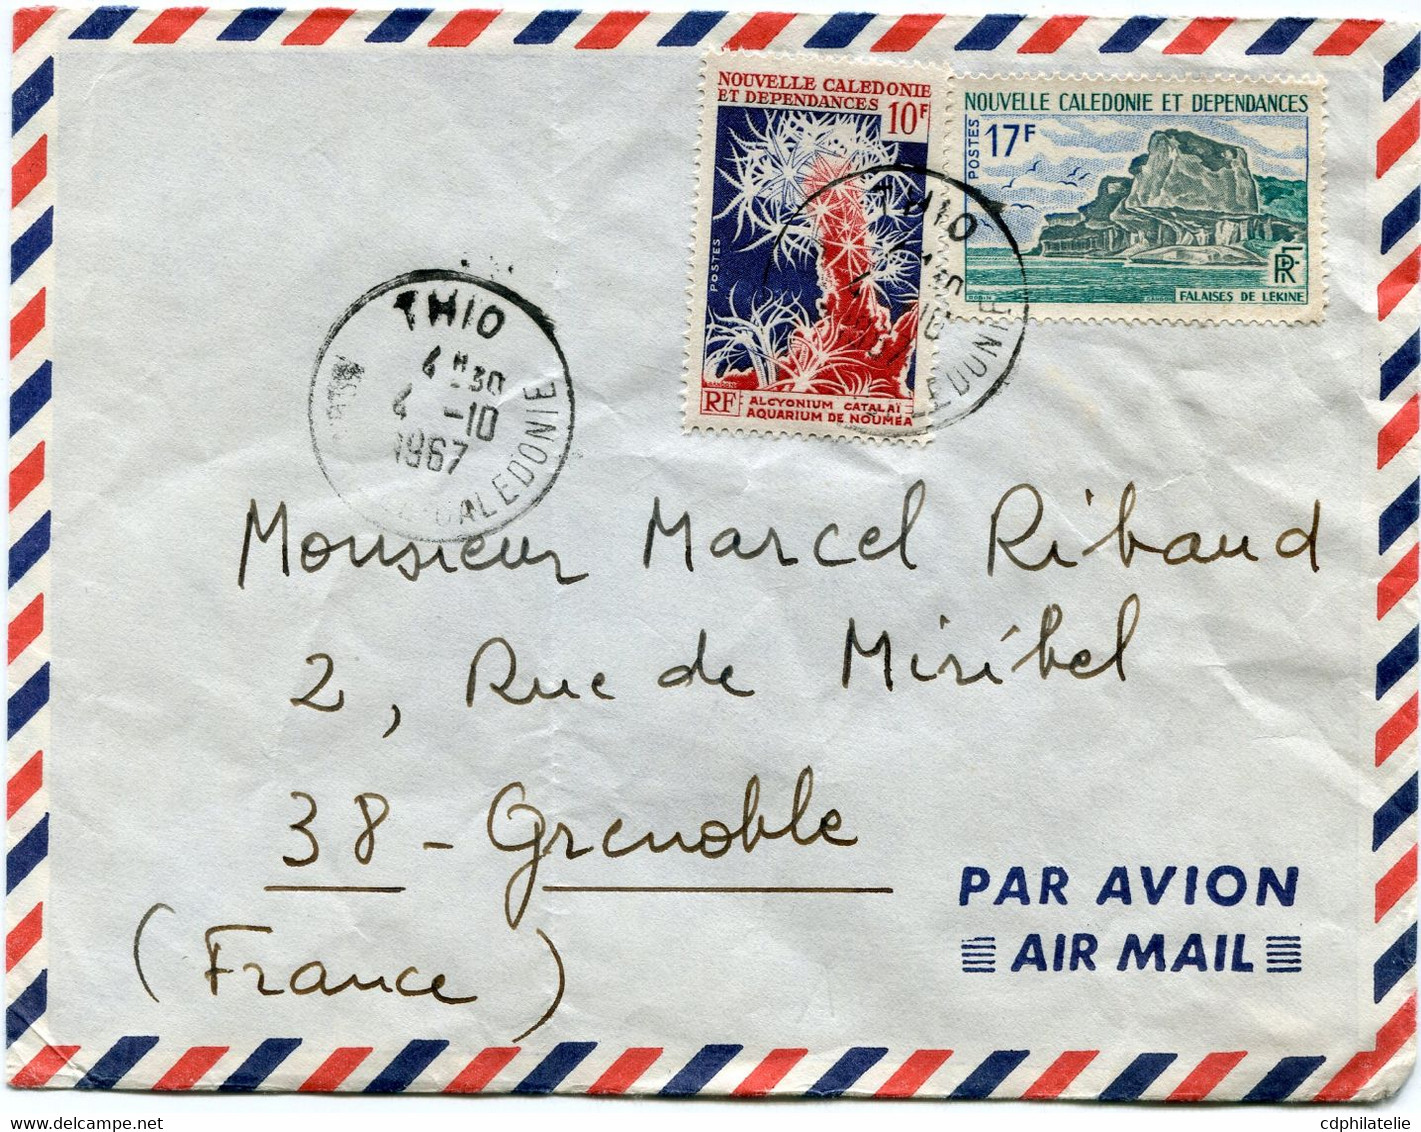 NOUVELLE CALEDONIE
ET DEPENDANCES 10F
POSTES
RF ALCYONIUM CATALAÏ
AQUARIUM DE NOUMEA
NOUVELLE CALEDONIE ET DEPENDANCES
POSTES 17F
RF
FALAISES DE LÉKINE
THIO
THIO
4H30
4 -10
1967
CALEDONIE
Monsieur Marcel Ribaud
2, Rue de Miribel
38 - Grenoble
(France)
PAR AVION
AIR MAIL
cdphilatelie